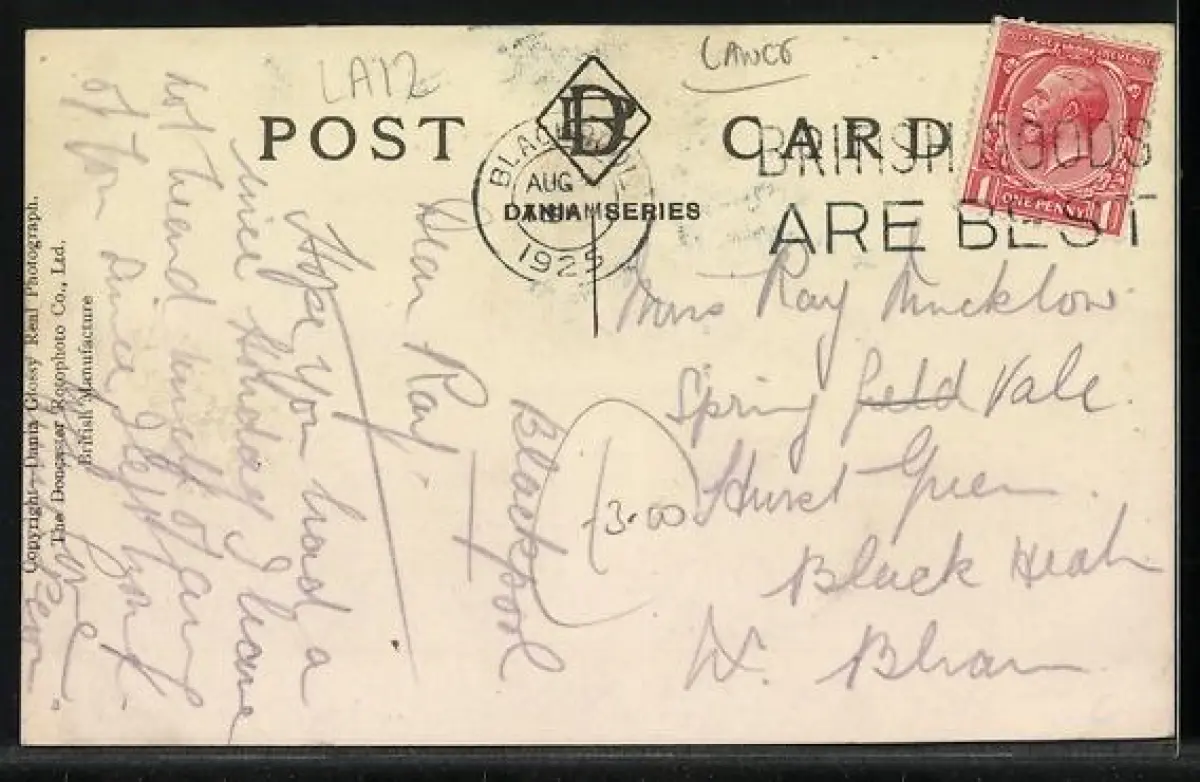 LA12
LANCS
POST CARD
DP
BLACKPOOL
AUG
1925
DANIA SERIES
BRITISH GOODS
ARE BEST
POSTAGE REVENUE
1 ONE PENNY 1
Miss Ray Mucklow
Spring field Vale.
Hurst Green.
Black Heath
Nr. Bham
£3.00
Blackpool
Dear Ray. —
Hope you had a
nice Holiday I have
not heard much of any
of you since I left home
Love
Copyright—Dania Glossy Real Photograph.
The Doncaster Rotophoto Co., Ltd.
British Manufacture